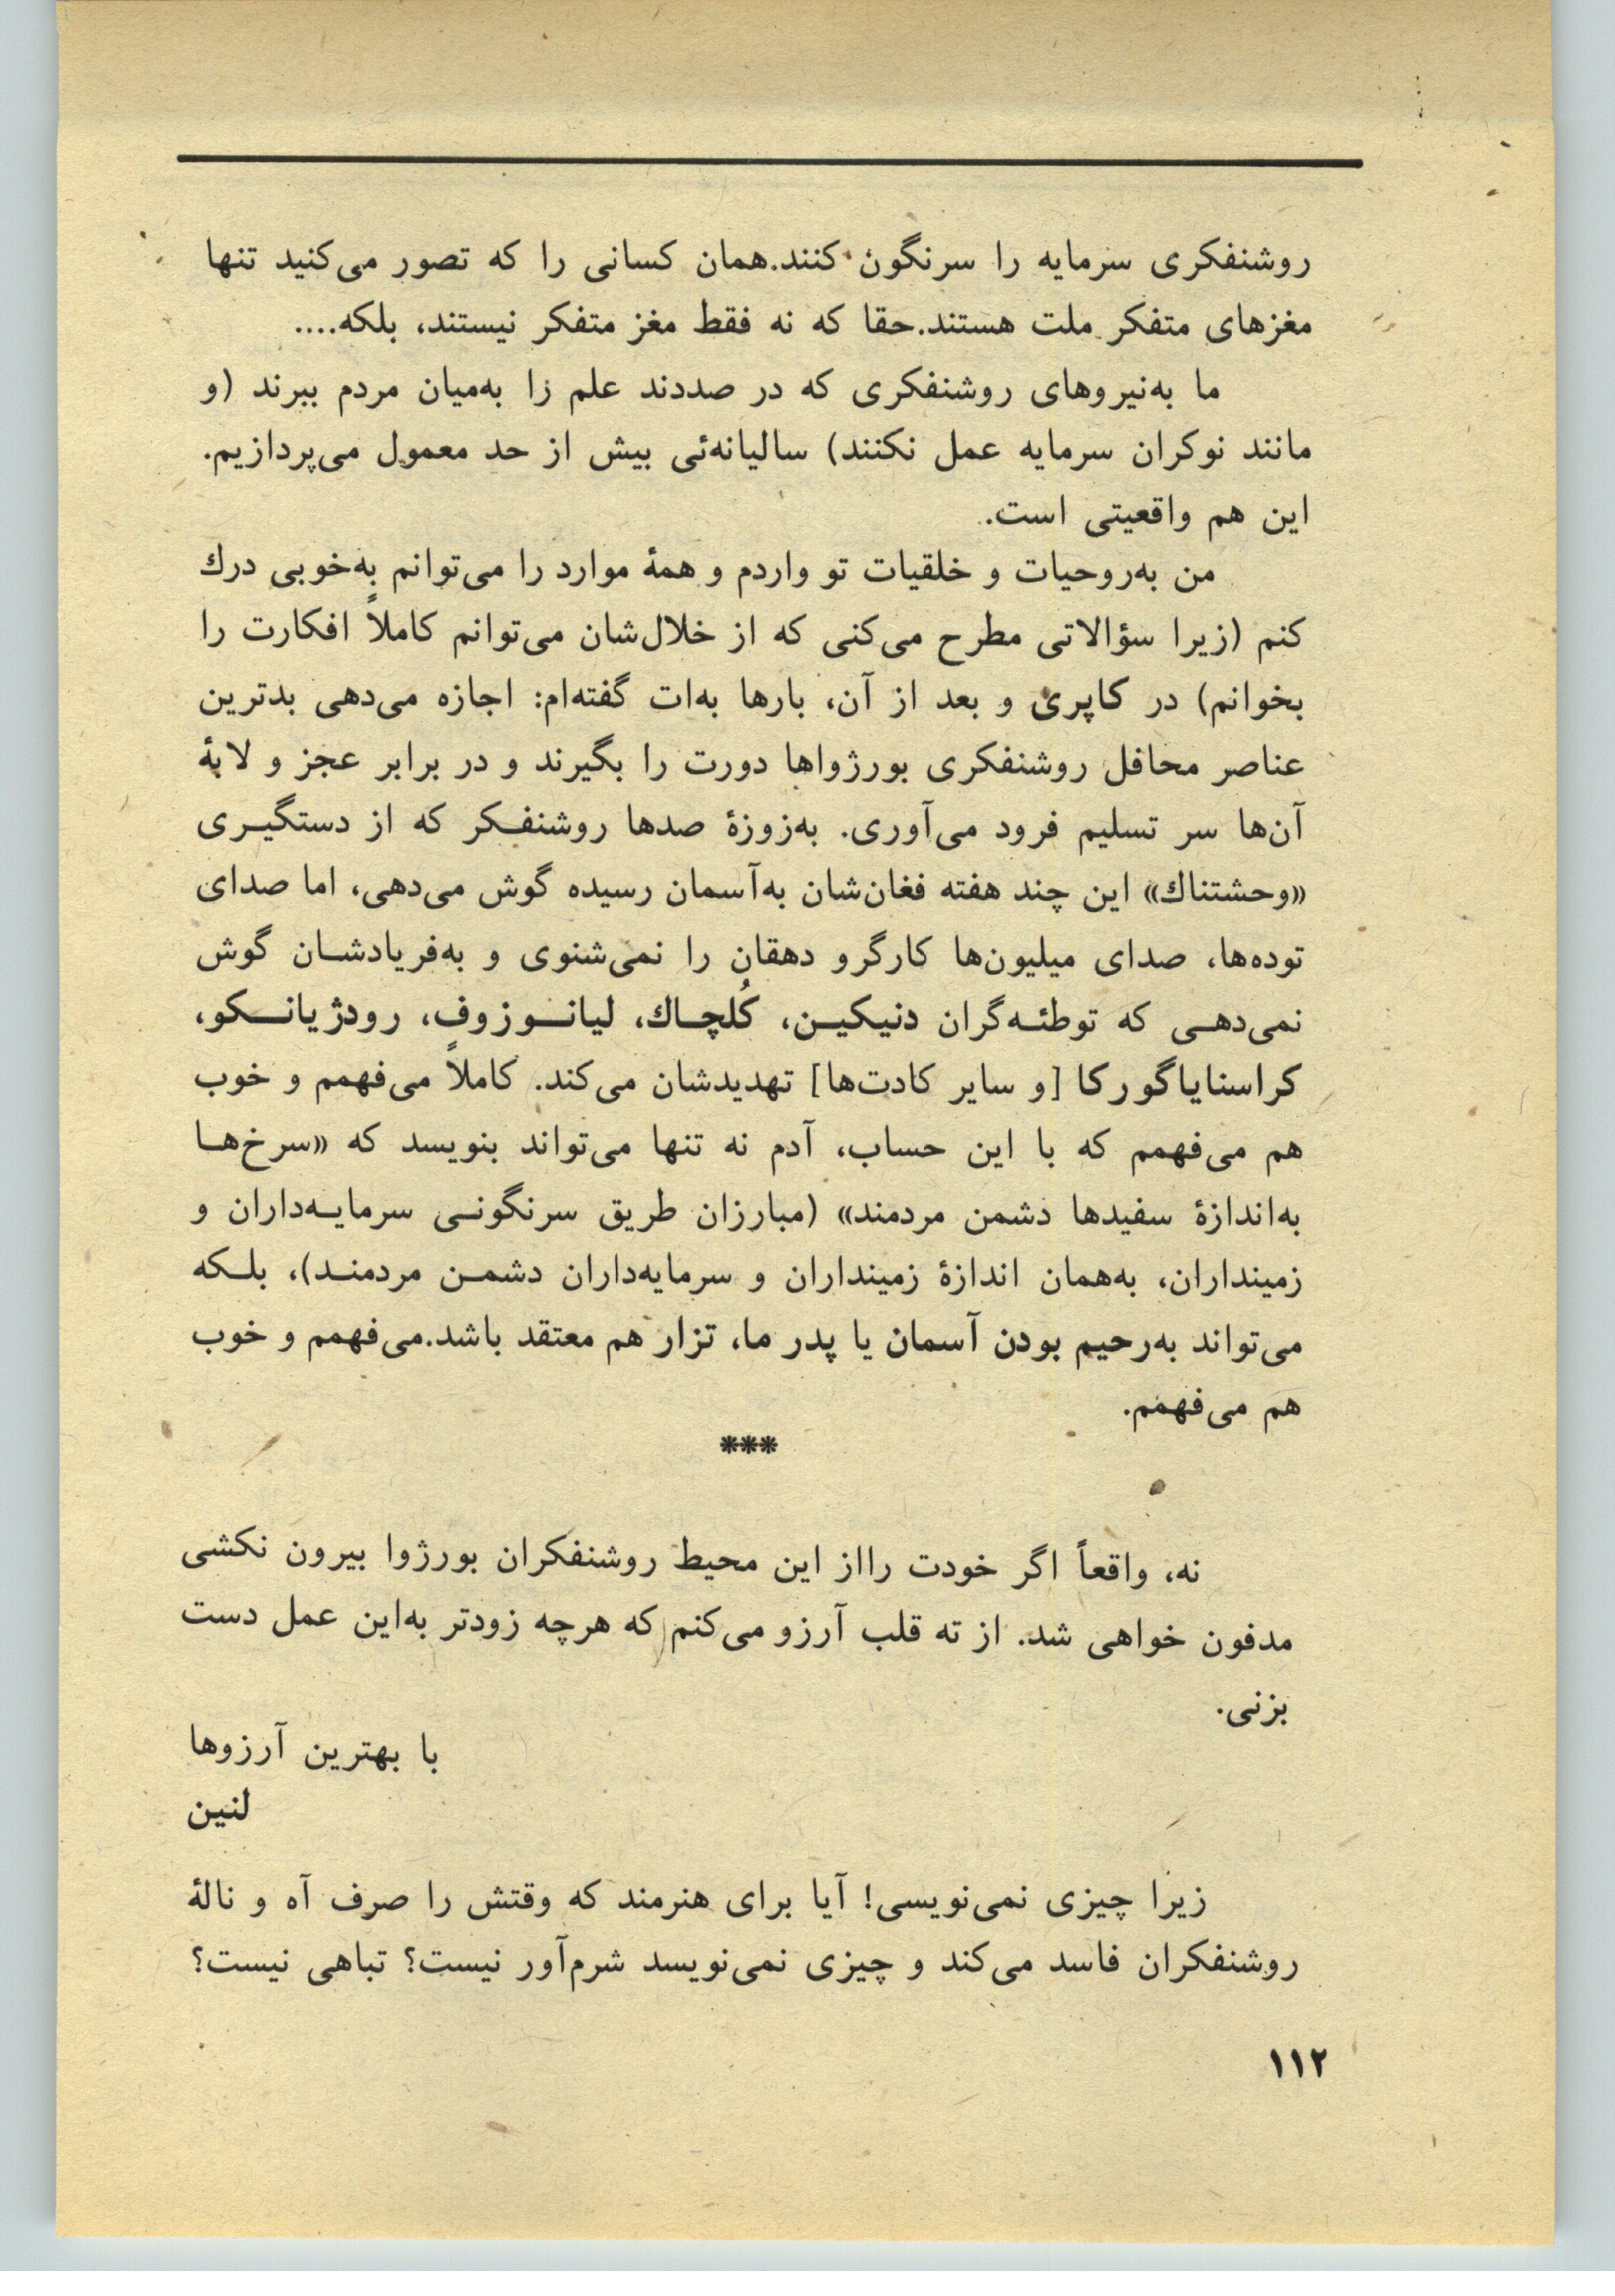 روشنفکری سرمایه را سرنگون کنند.همان کسانی را که تصور می‌کنید تنها
مغزهای متفکر ملت هستند.حقا که نه فقط مغز متفکر نیستند، بلکه....
ما به‌نیروهای روشنفکری که در صددند علم را به‌میان مردم ببرند (و
مانند نوکران سرمایه عمل نکنند) سالیانه‌ئی بیش از حد معمول می‌پردازیم.
این هم واقعیتی است.
من به‌روحیات و خلقیات تو واردم و همهٔ موارد را می‌توانم به‌خوبی درك
کنم (زیرا سؤالاتی مطرح می‌کنی که از خلال‌شان می‌توانم کاملاً افکارت را
بخوانم) در کاپری و بعد از آن، بارها به‌ات گفته‌ام: اجازه می‌دهی بدترین
عناصر محافل روشنفکری بورژواها دورت را بگیرند و در برابر عجز و لابهٔ
آن‌ها سر تسلیم فرود می‌آوری. به‌زوزهٔ صدها روشنفـکر که از دستگیـری
«وحشتناك» این چند هفته فغان‌شان به‌آسمان رسیده گوش می‌دهی، اما صدای
توده‌ها، صدای میلیون‌ها کارگرو دهقان را نمی‌شنوی و به‌فریادشـان گوش
نمی‌دهـی که توطئـه‌گران دنیکیـن، کُلچـاك، لیانـوزوف، رودژیانـکو،
کراسنایاگورکا [و سایر کادت‌ها] تهدیدشان می‌کند. کاملاً می‌فهمم و خوب
هم می‌فهمم که با این حساب، آدم نه تنها می‌تواند بنویسد که «سرخ‌هـا
به‌اندازهٔ سفیدها دشمن مردمند» (مبارزان طریق سرنگونـی سرمایـه‌داران و
زمینداران، به‌همان اندازهٔ زمینداران و سرمایه‌داران دشمـن مردمنـد)، بلـکه
می‌تواند به‌رحیم بودن آسمان یا پدر ما، تزار هم معتقد باشد.می‌فهمم و خوب
هم می‌فهمم.
***
نه، واقعاً اگر خودت رااز این محیط روشنفکران بورژوا بیرون نکشی
مدفون خواهی شد. از ته قلب آرزو می‌کنم که هرچه زودتر به‌این عمل دست
بزنی.
با بهترین آرزوها
لنین
زیرا چیزی نمی‌نویسی! آیا برای هنرمند که وقتش را صرف آه و نالهٔ
روشنفکران فاسد می‌کند و چیزی نمی‌نویسد شرم‌آور نیست؟ تباهی نیست؟
۱۱۲